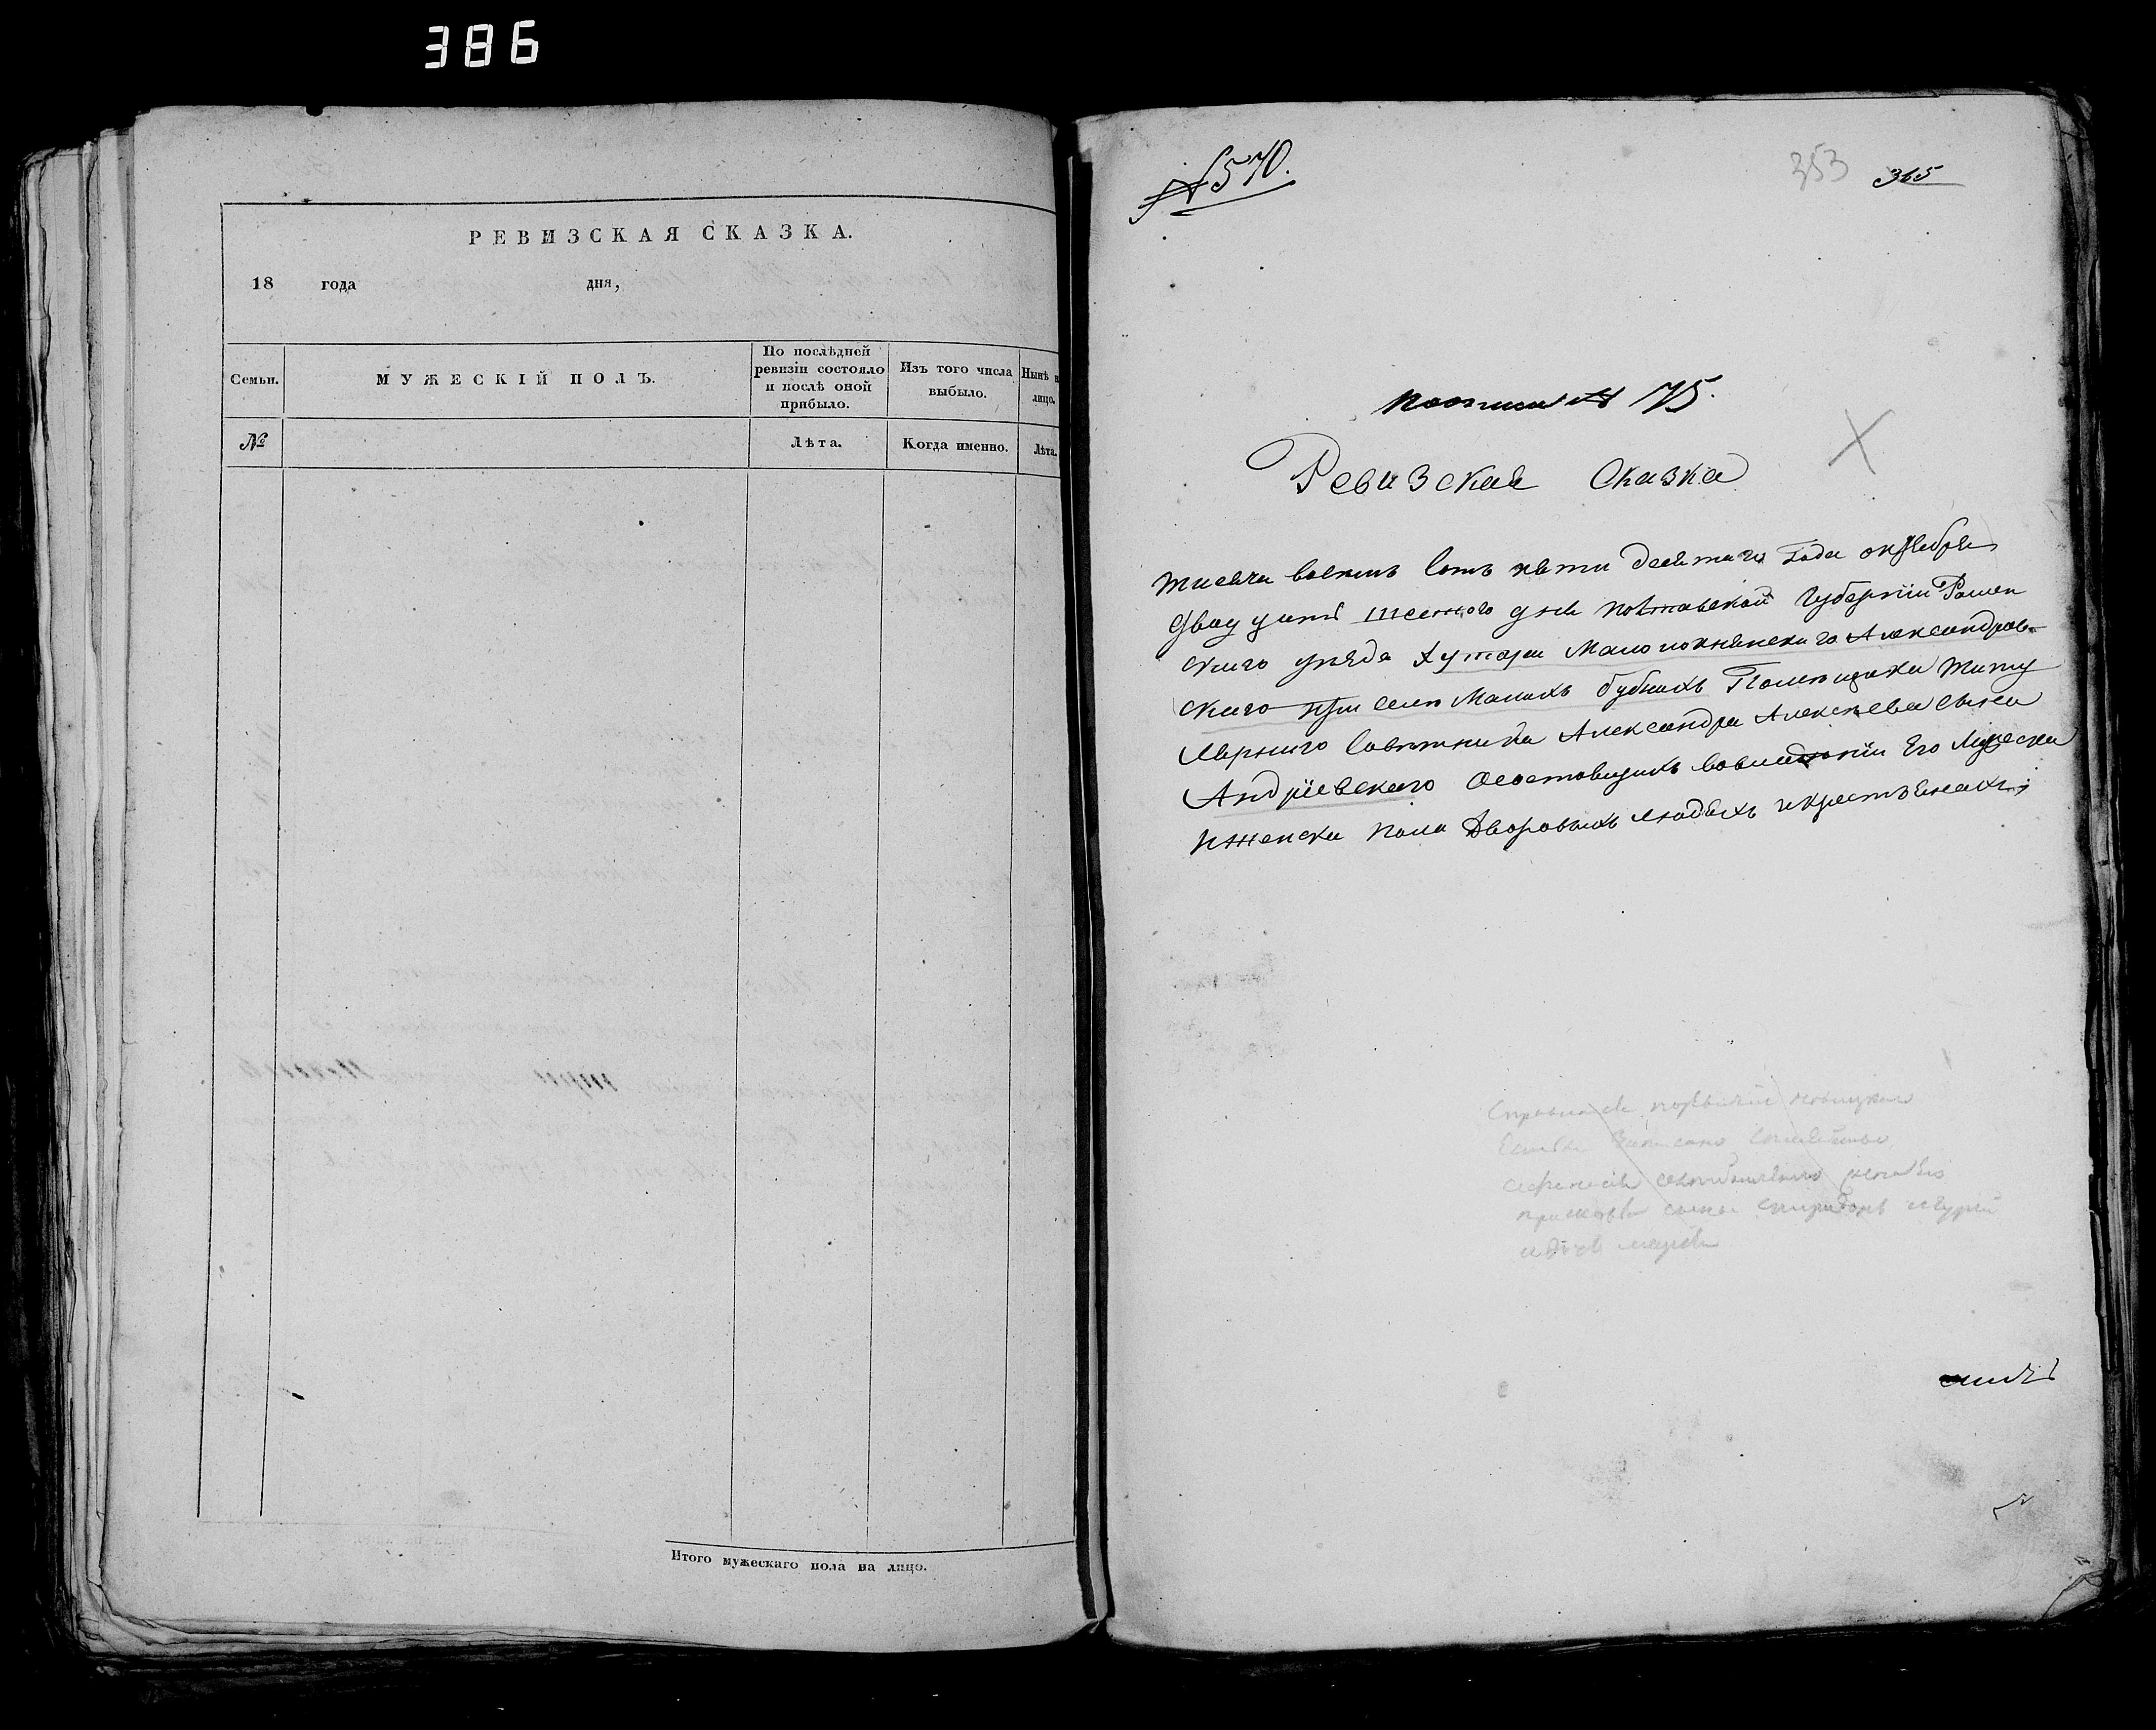 386
РЕВИЗСКАЯ СКАЗКА.
18 года дня,
Семьи.
МУЖЕСКІЙ ПОЛЪ.
По послѣдней
ревизіи состояло
и послѣ оной
прибыло.
Изъ того числа
выбыло.
Нынѣ н
лицо.
№
Лѣта.
Когда именно.
Лѣта.
Итого мужескаго пола на лицо.
№ 570.
353 365
№ 75.
Ревизская Сказка
тисяча восемь сотъ пяти десятаго Года октября
двадцать шестого дня Полтавской Губерніи Ромен
скаго уезда Хутора Мало Александров-
скаго при селе Малихъ Бубнахъ Помещика титу
лярнаго Советника Александра Алексеева сына
Андріевскаго Осостоящихъ вовладеніи Его Мужеска
иженска пола Дворовыхъ людяхъ икрестьянахъ;